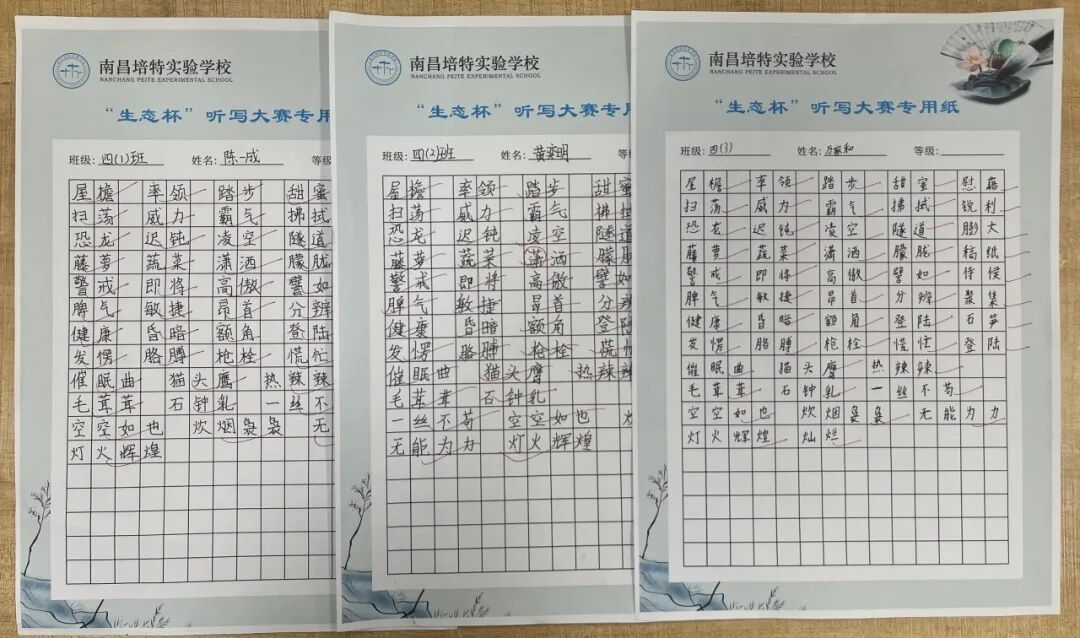 南昌培特实验学校
NANCHANG PEITE EXPERIMENTAL SCHOOL
“生态杯”听写大赛专用
班级: 四(1)班 姓名: 陈一成 等级
屋檐 率领 踏步 甜蜜
扫荡 威力 霸气 拂拭
恐龙 迟钝 凌空 隧道
藤萝 蔬菜 潇洒 朦胧
警戒 即将 高傲 譬如
脾气 敏捷 昂首 分辨
健康 昏暗 额角 登陆
发愣 胳膊 枪栓 慌忙
催眠曲 猫头鹰 热辣辣
毛茸茸 石钟乳 一丝不
空空如也 炊烟袅袅 无
灯火辉煌
南昌培特实验学校
NANCHANG PEITE EXPERIMENTAL SCHOOL
“生态杯”听写大赛专用
班级: 四(2)班 姓名: 黄奕明 等级
屋檐 率领 踏步 甜蜜
扫荡 威力 霸气 拂拭
恐龙 迟钝 凌空 隧道
藤萝 蔬菜 潇洒 朦胧
警戒 即将 高傲 譬如
脾气 敏捷 昂首 分辨
健康 昏暗 额角 登陆
发愣 胳膊 枪栓 慌忙
催眠曲 猫头鹰 热辣辣
毛茸茸 石钟乳
一丝不苟 空空如也 炊
无能为力 灯火辉煌
南昌培特实验学校
NANCHANG PEITE EXPERIMENTAL SCHOOL
“生态杯”听写大赛专用纸
班级: 四(3) 姓名: 万家和 等级:
屋檐 率领 踏步 甜蜜 慰藉
扫荡 威力 霸气 拂拭 锐利
恐龙 迟钝 凌空 隧道 膨大
藤萝 蔬菜 潇洒 朦胧 稿纸
警戒 即将 高傲 譬如 侍候
脾气 敏捷 昂首 分辨 聚集
健康 昏暗 额角 登陆 石笋
发愣 胳膊 枪栓 慌忙 登陆
催眠曲 猫头鹰 热辣辣
毛茸茸 石钟乳 一丝不苟
空空如也 炊烟袅袅 无能为力
灯火辉煌 灿烂